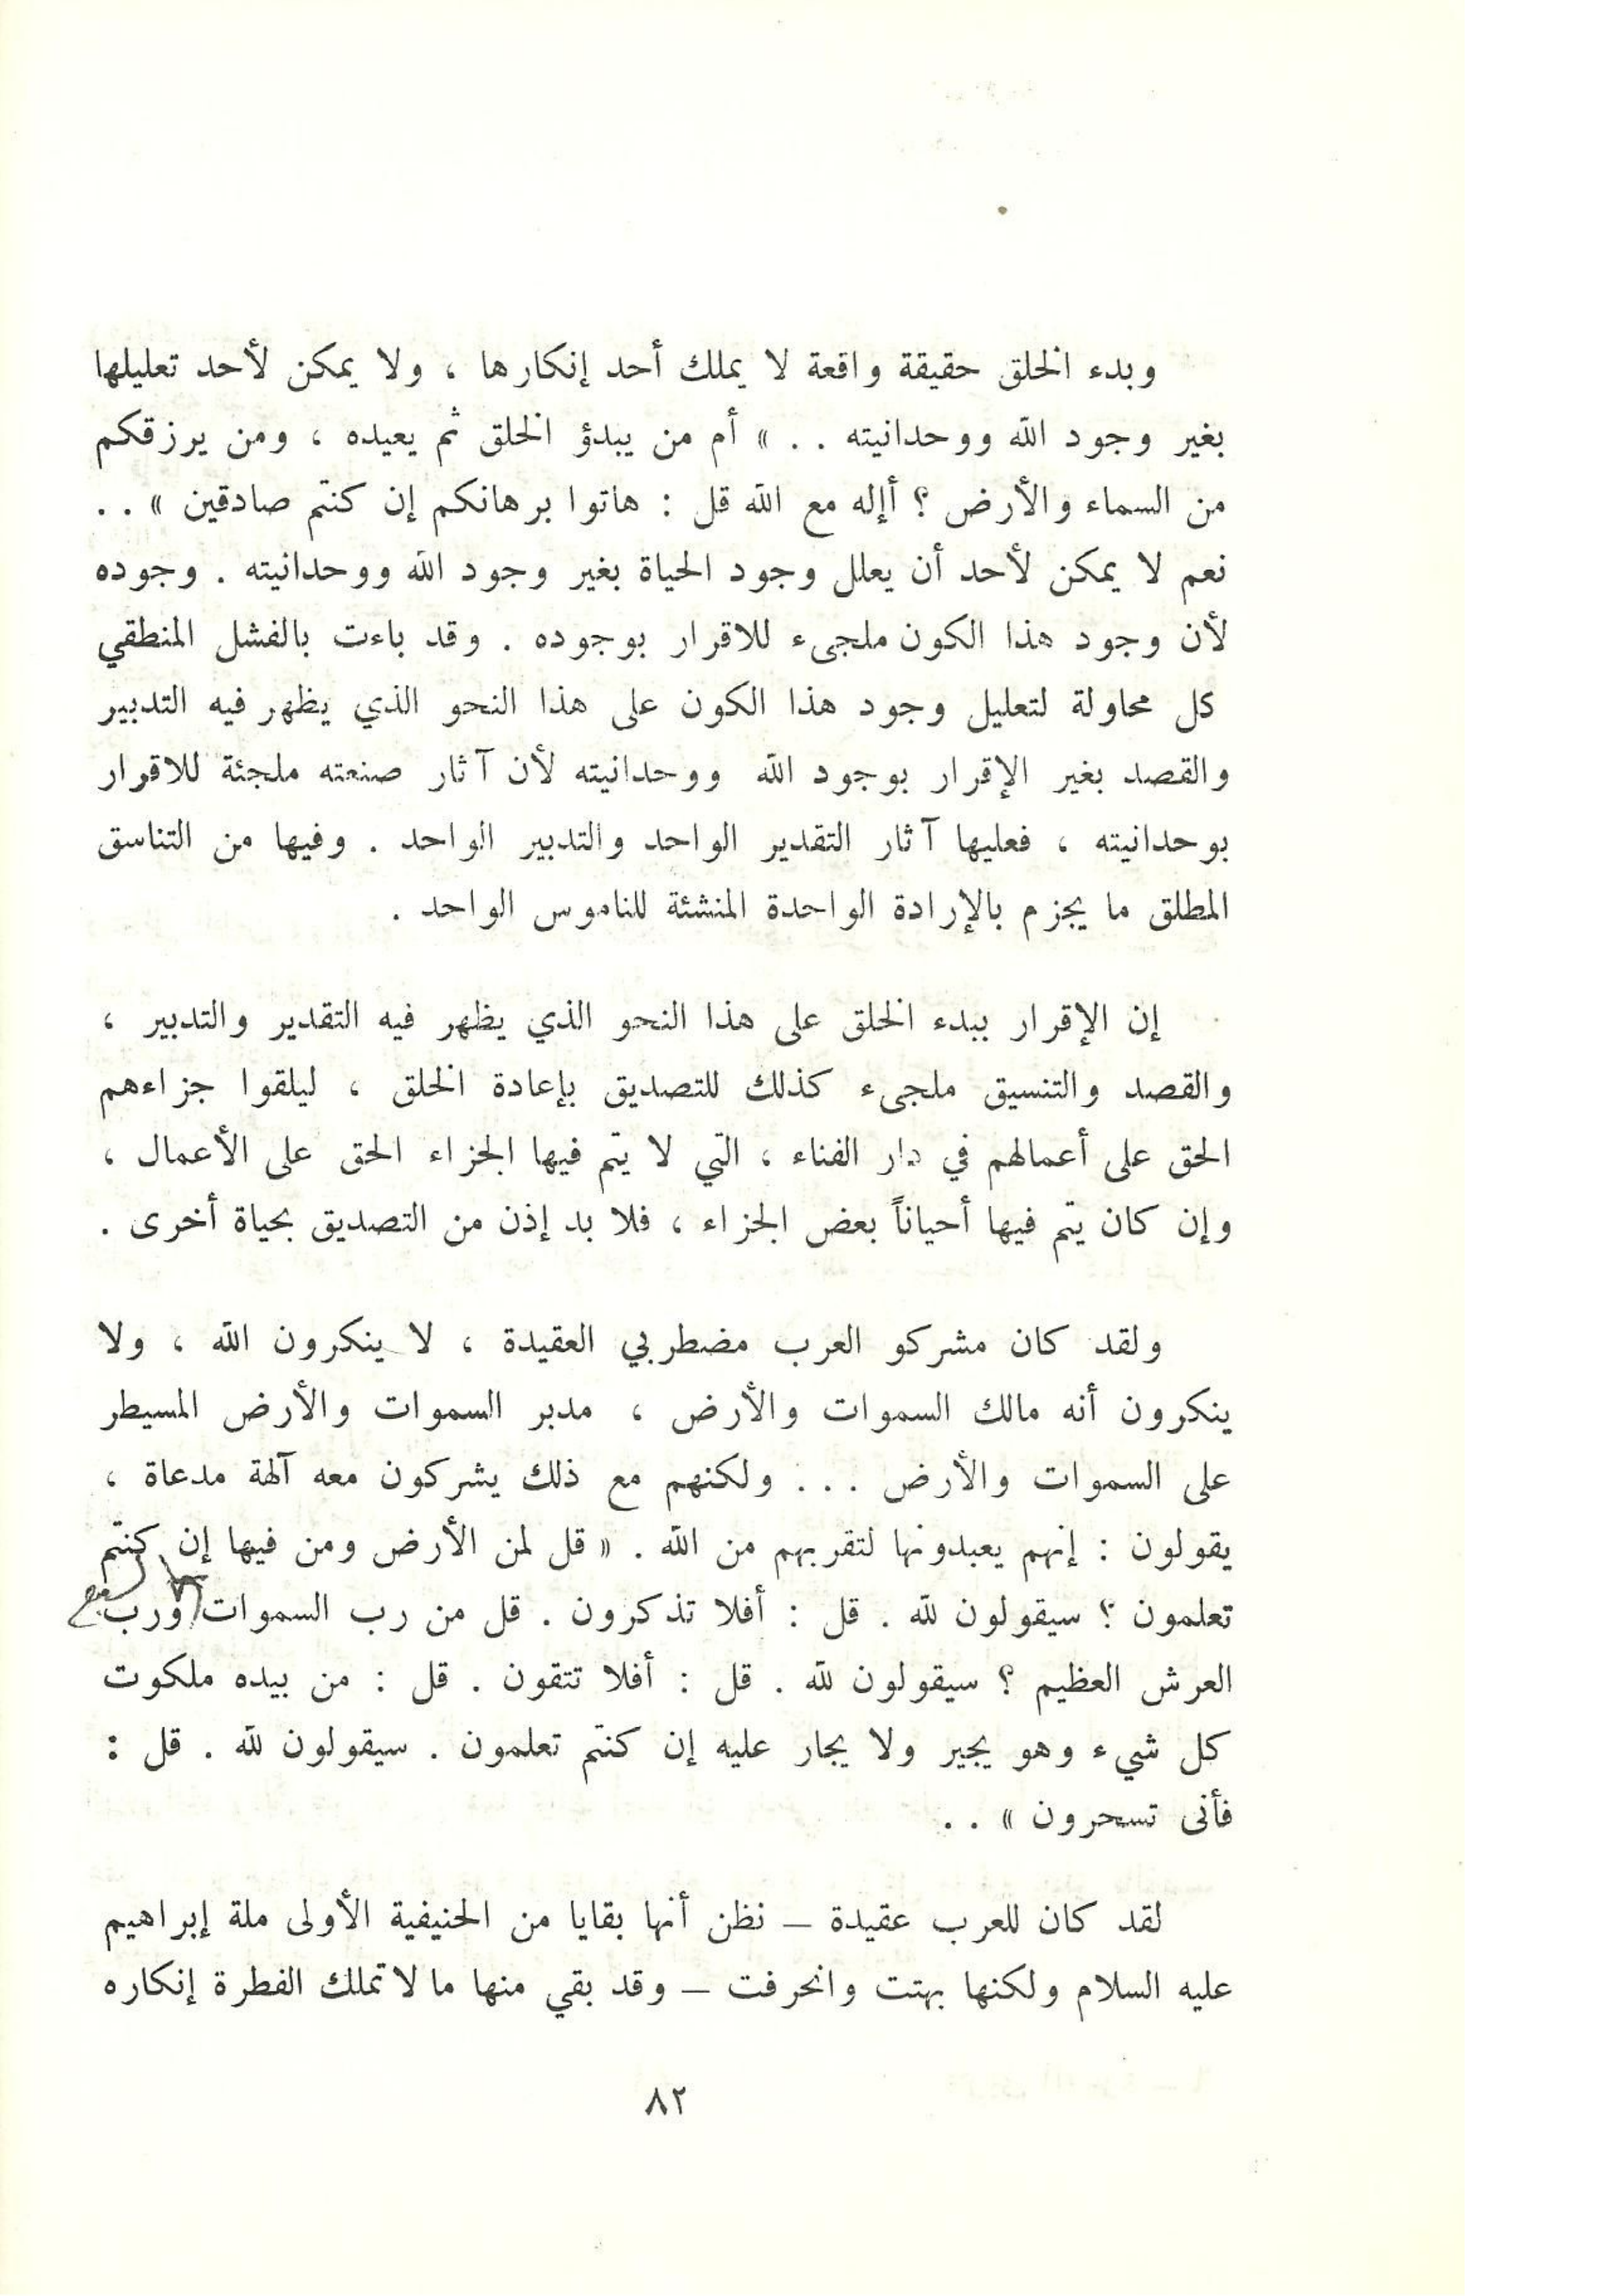 وبدء الخلق حقيقة واقعة لا يملك أحد إنكارها ، ولا يمكن لأحد تعليلها
بغير وجود الله ووحدانيته . . » أم من يبدؤ الخلق ثم يعيده ، ومن يرزقكم
من السماء والأرض ؟ أإله مع الله قل : هاتوا برهانكم إن كنتم صادقين » . .
نعم لا يمكن لأحد أن يعلل وجود الحياة بغير وجود الله ووحدانيته . وجوده
لأن وجود هذا الكون ملجىء للاقرار بوجوده . وقد باءت بالفشل المنطقي
كل محاولة لتعليل وجود هذا الكون على هذا النحو الذي يظهر فيه التدبير
والقصد بغير الإقرار بوجود الله ووحدانيته لأن آثار صنعته ملجئة للاقرار
بوحدانيته ، فعليها آثار التقدير الواحد والتدبير الواحد . وفيها من التناسق
المطلق ما يجزم بالإرادة الواحدة المنشئة للناموس الواحد .
إن الإقرار ببدء الخلق على هذا النحو الذي يظهر فيه التقدير والتدبير ،
والقصد والتنسيق ملجىء كذلك للتصديق بإعادة الخلق ، ليلقوا جزاءهم
الحق على أعمالهم في دار الفناء ، التي لا يتم فيها الجزاء الحق على الأعمال ،
وإن كان يتم فيها أحياناً بعض الجزاء ، فلا بد إذن من التصديق بحياة أخرى .
ولقد كان مشركو العرب مضطربي العقيدة ، لا ينكرون الله ، ولا
ينكرون أنه مالك السموات والأرض ، مدبر السموات والأرض المسيطر
على السموات والأرض . . . ولكنهم مع ذلك يشركون معه آلهة مدعاة ،
يقولون : إنهم يعبدونها لتقربهم من الله . « قل لمن الأرض ومن فيها إن كنتم
تعلمون ؟ سيقولون لله . قل : أفلا تذكرون . قل من رب السموات السبع ورب
العرش العظيم ؟ سيقولون لله . قل : أفلا تتقون . قل : من بيده ملكوت
كل شيء وهو يجير ولا يجار عليه إن كنتم تعلمون . سيقولون لله . قل :
فأنى تسحرون » . .
لقد كان للعرب عقيدة – نظن أنها بقايا من الحنيفية الأولى ملة إبراهيم
عليه السلام ولكنها بهتت وانحرفت – وقد بقي منها ما لا تملك الفطرة إنكاره
٨٢